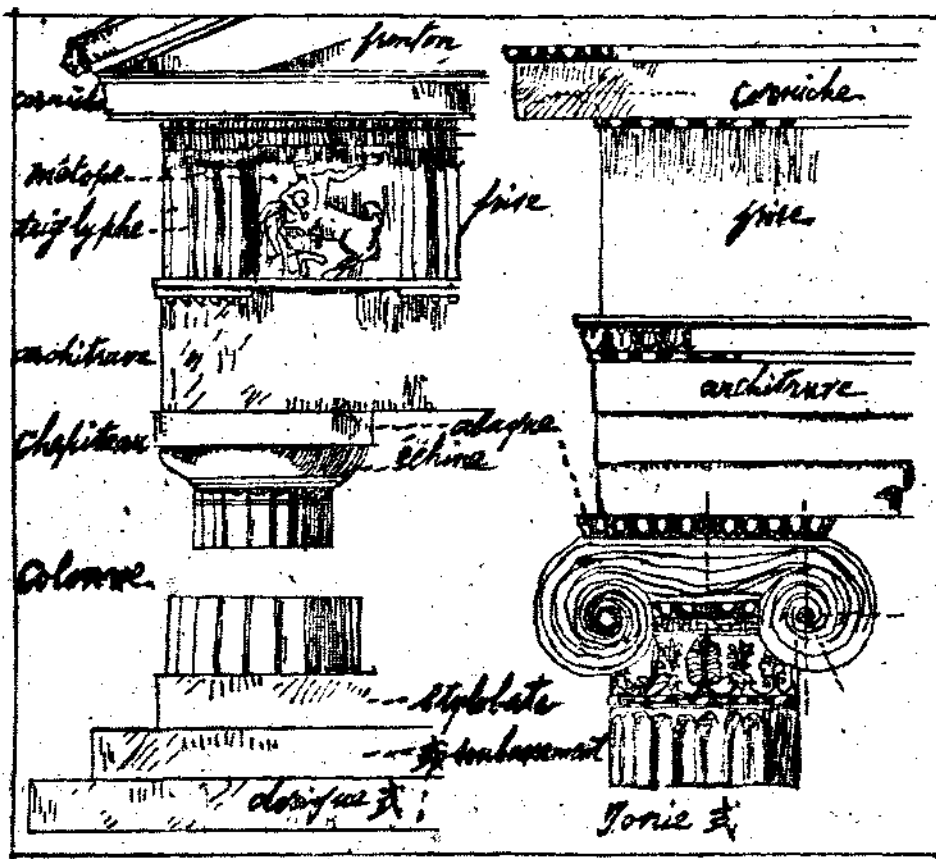 fronton
corniche
métope
triglyphe
frise
architrave
Chapiteau
abaque
échine
Colonne
stylobate
soubassement
dorique 式
corniche
frise
architrave
Ionie 式